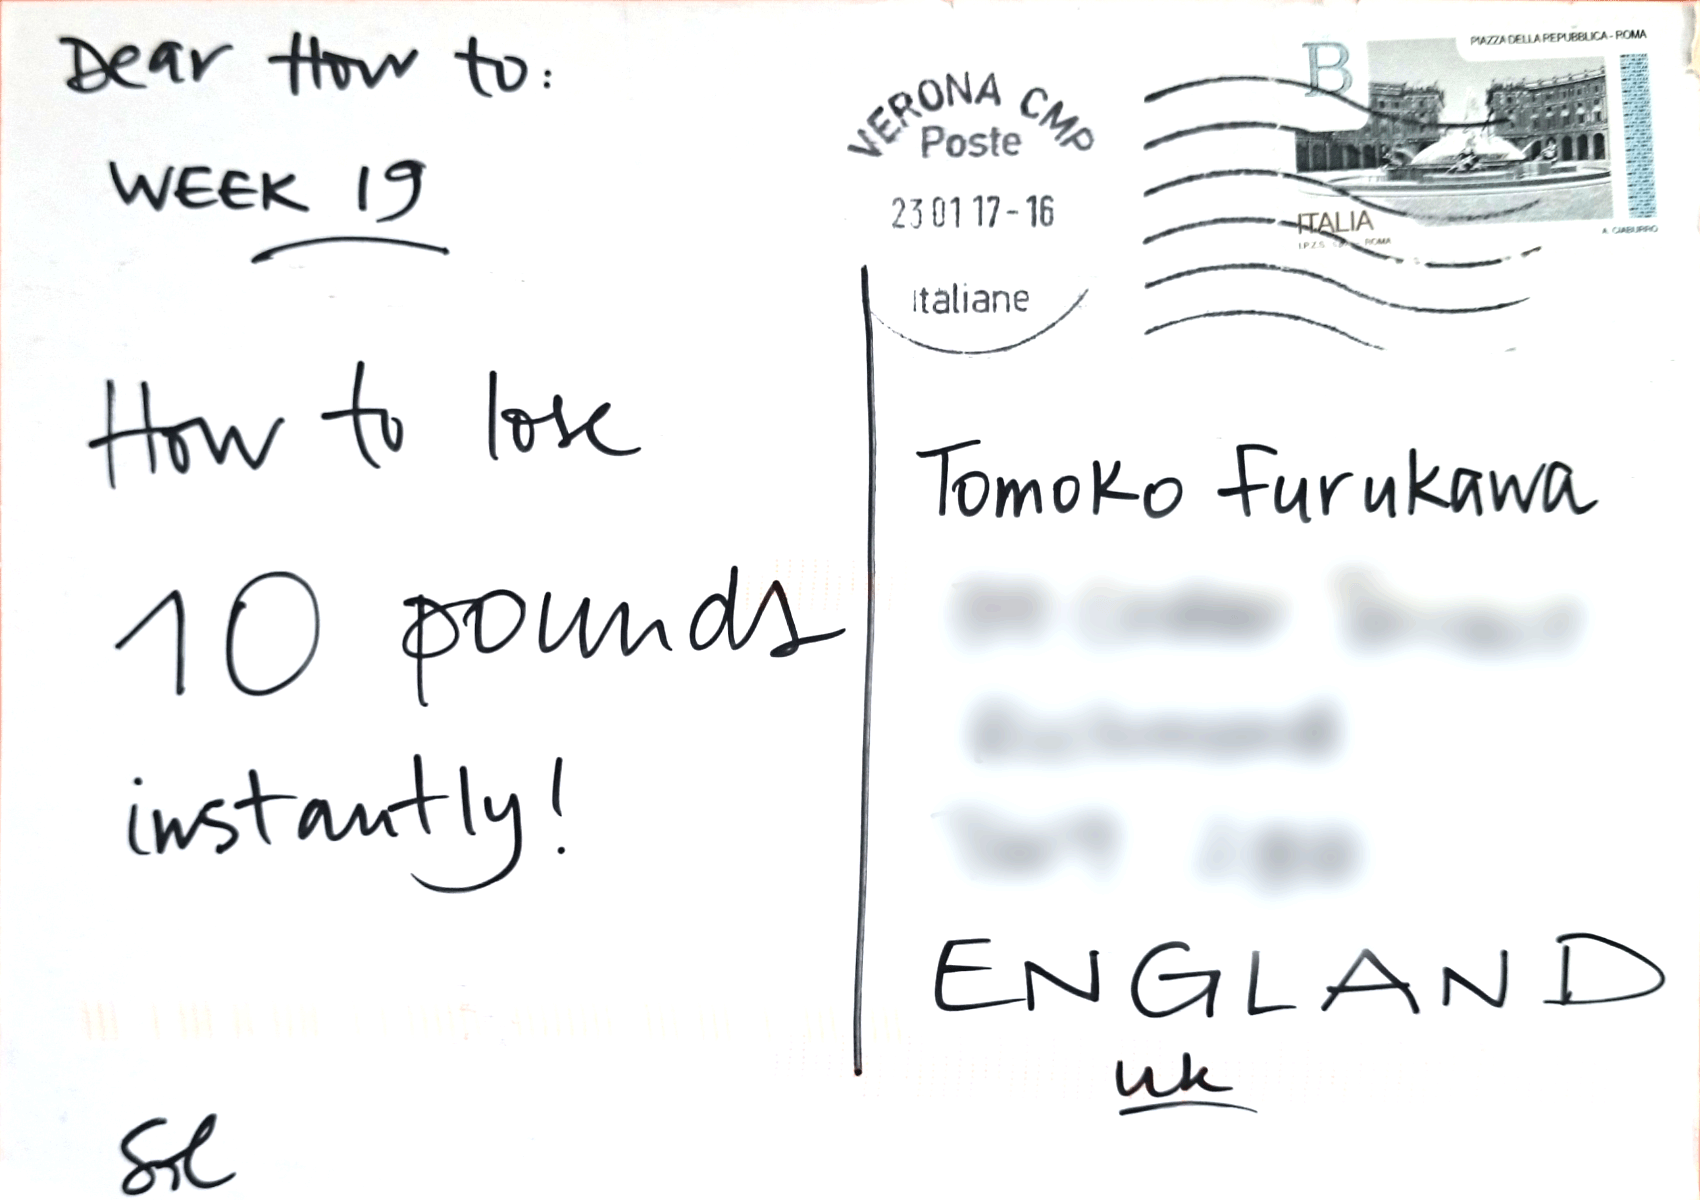 Dear How to:
WEEK 19
How to lose
10 pounds
instantly!
VERONA CMP
Poste
23 01 17-16
italiane
B
PIAZZA DELLA REPUBBLICA - ROMA
ITALIA
I.P.Z.S. ROMA
A. CIABURRO
Tomoko Furukawa
ENGLAND
UK